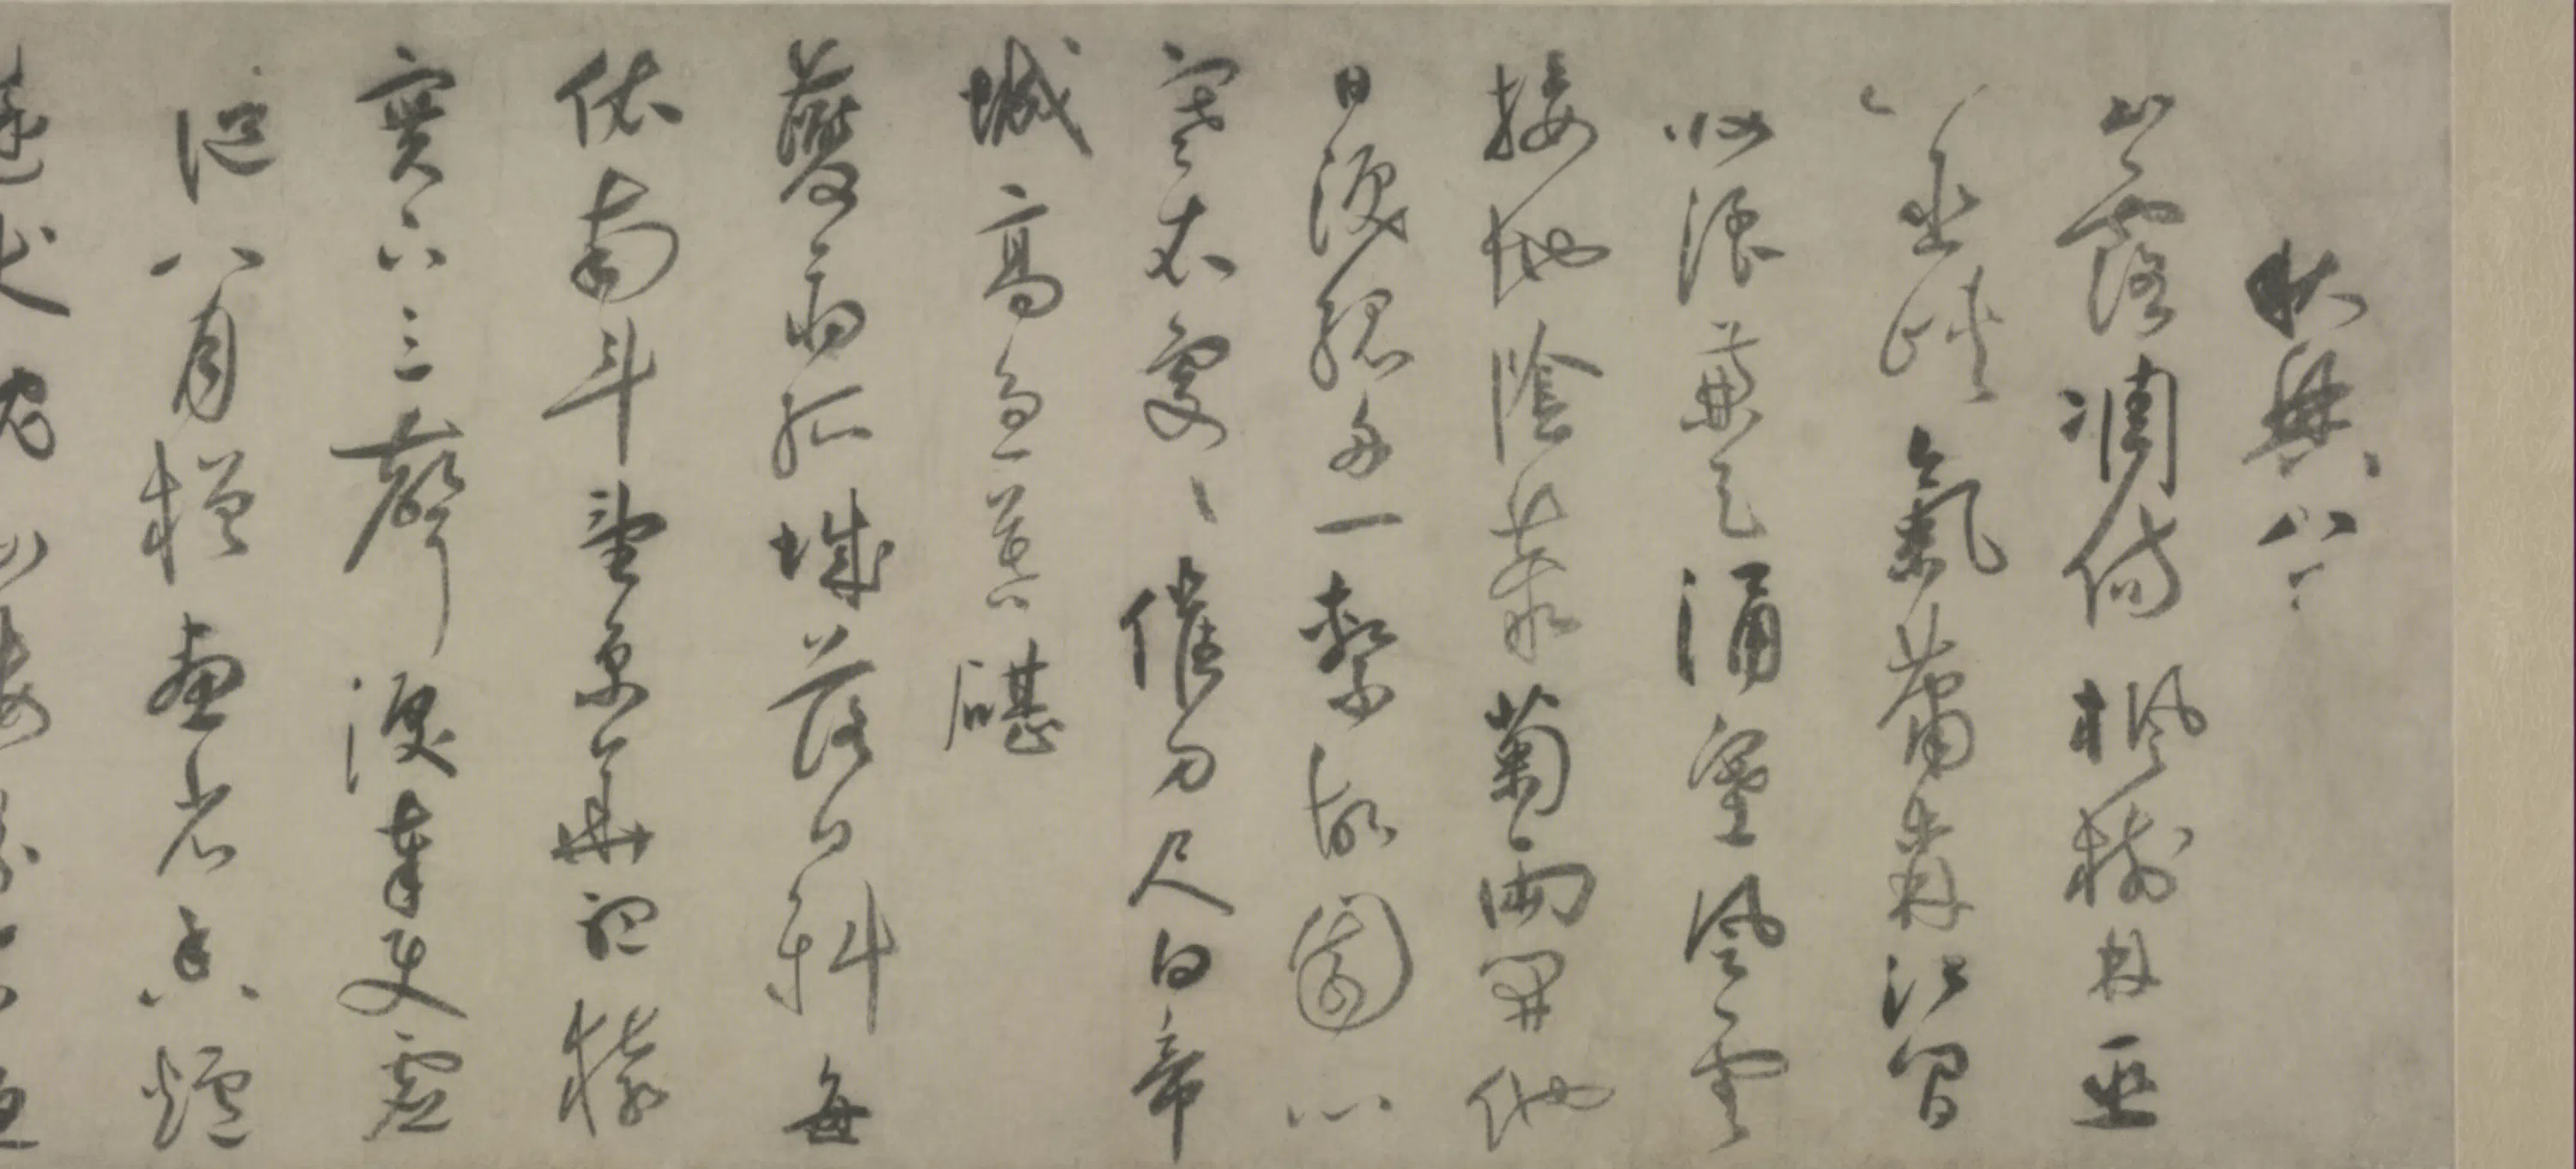 秋興八首
玉露凋傷楓樹林巫
山巫峽氣蕭森江間
波浪兼天涌塞上風雲
接地陰叢菊兩開他
日淚孤舟一繫故園心
寒衣處〻催刀尺白帝
城高急暮碪
夔府孤城落日斜每
依南斗望京華聽猿
實下三聲淚奉使虛
隨八月槎畫省香爐
違伏枕山樓粉堞隱